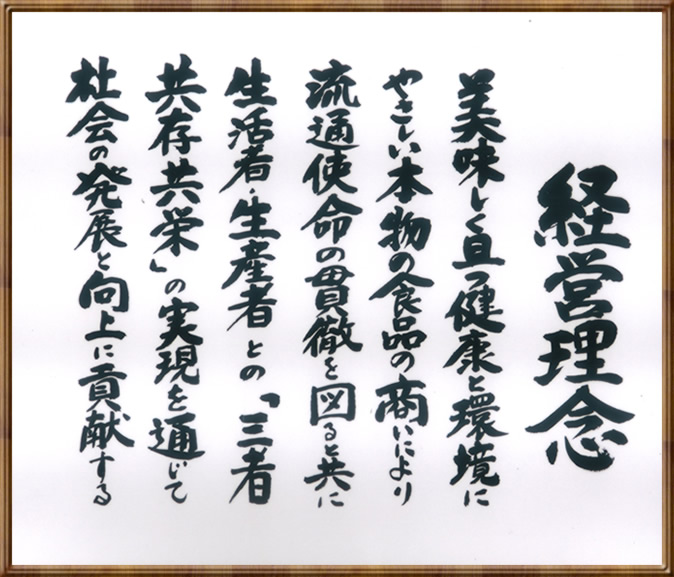 経営理念
美味しく且つ健康と環境に
やさしい本物の食品の商いにより
流通使命の貫徹を図ると共に
生活者・生産者との「三者
共存共栄」の実現を通じて
社会の発展と向上に貢献する